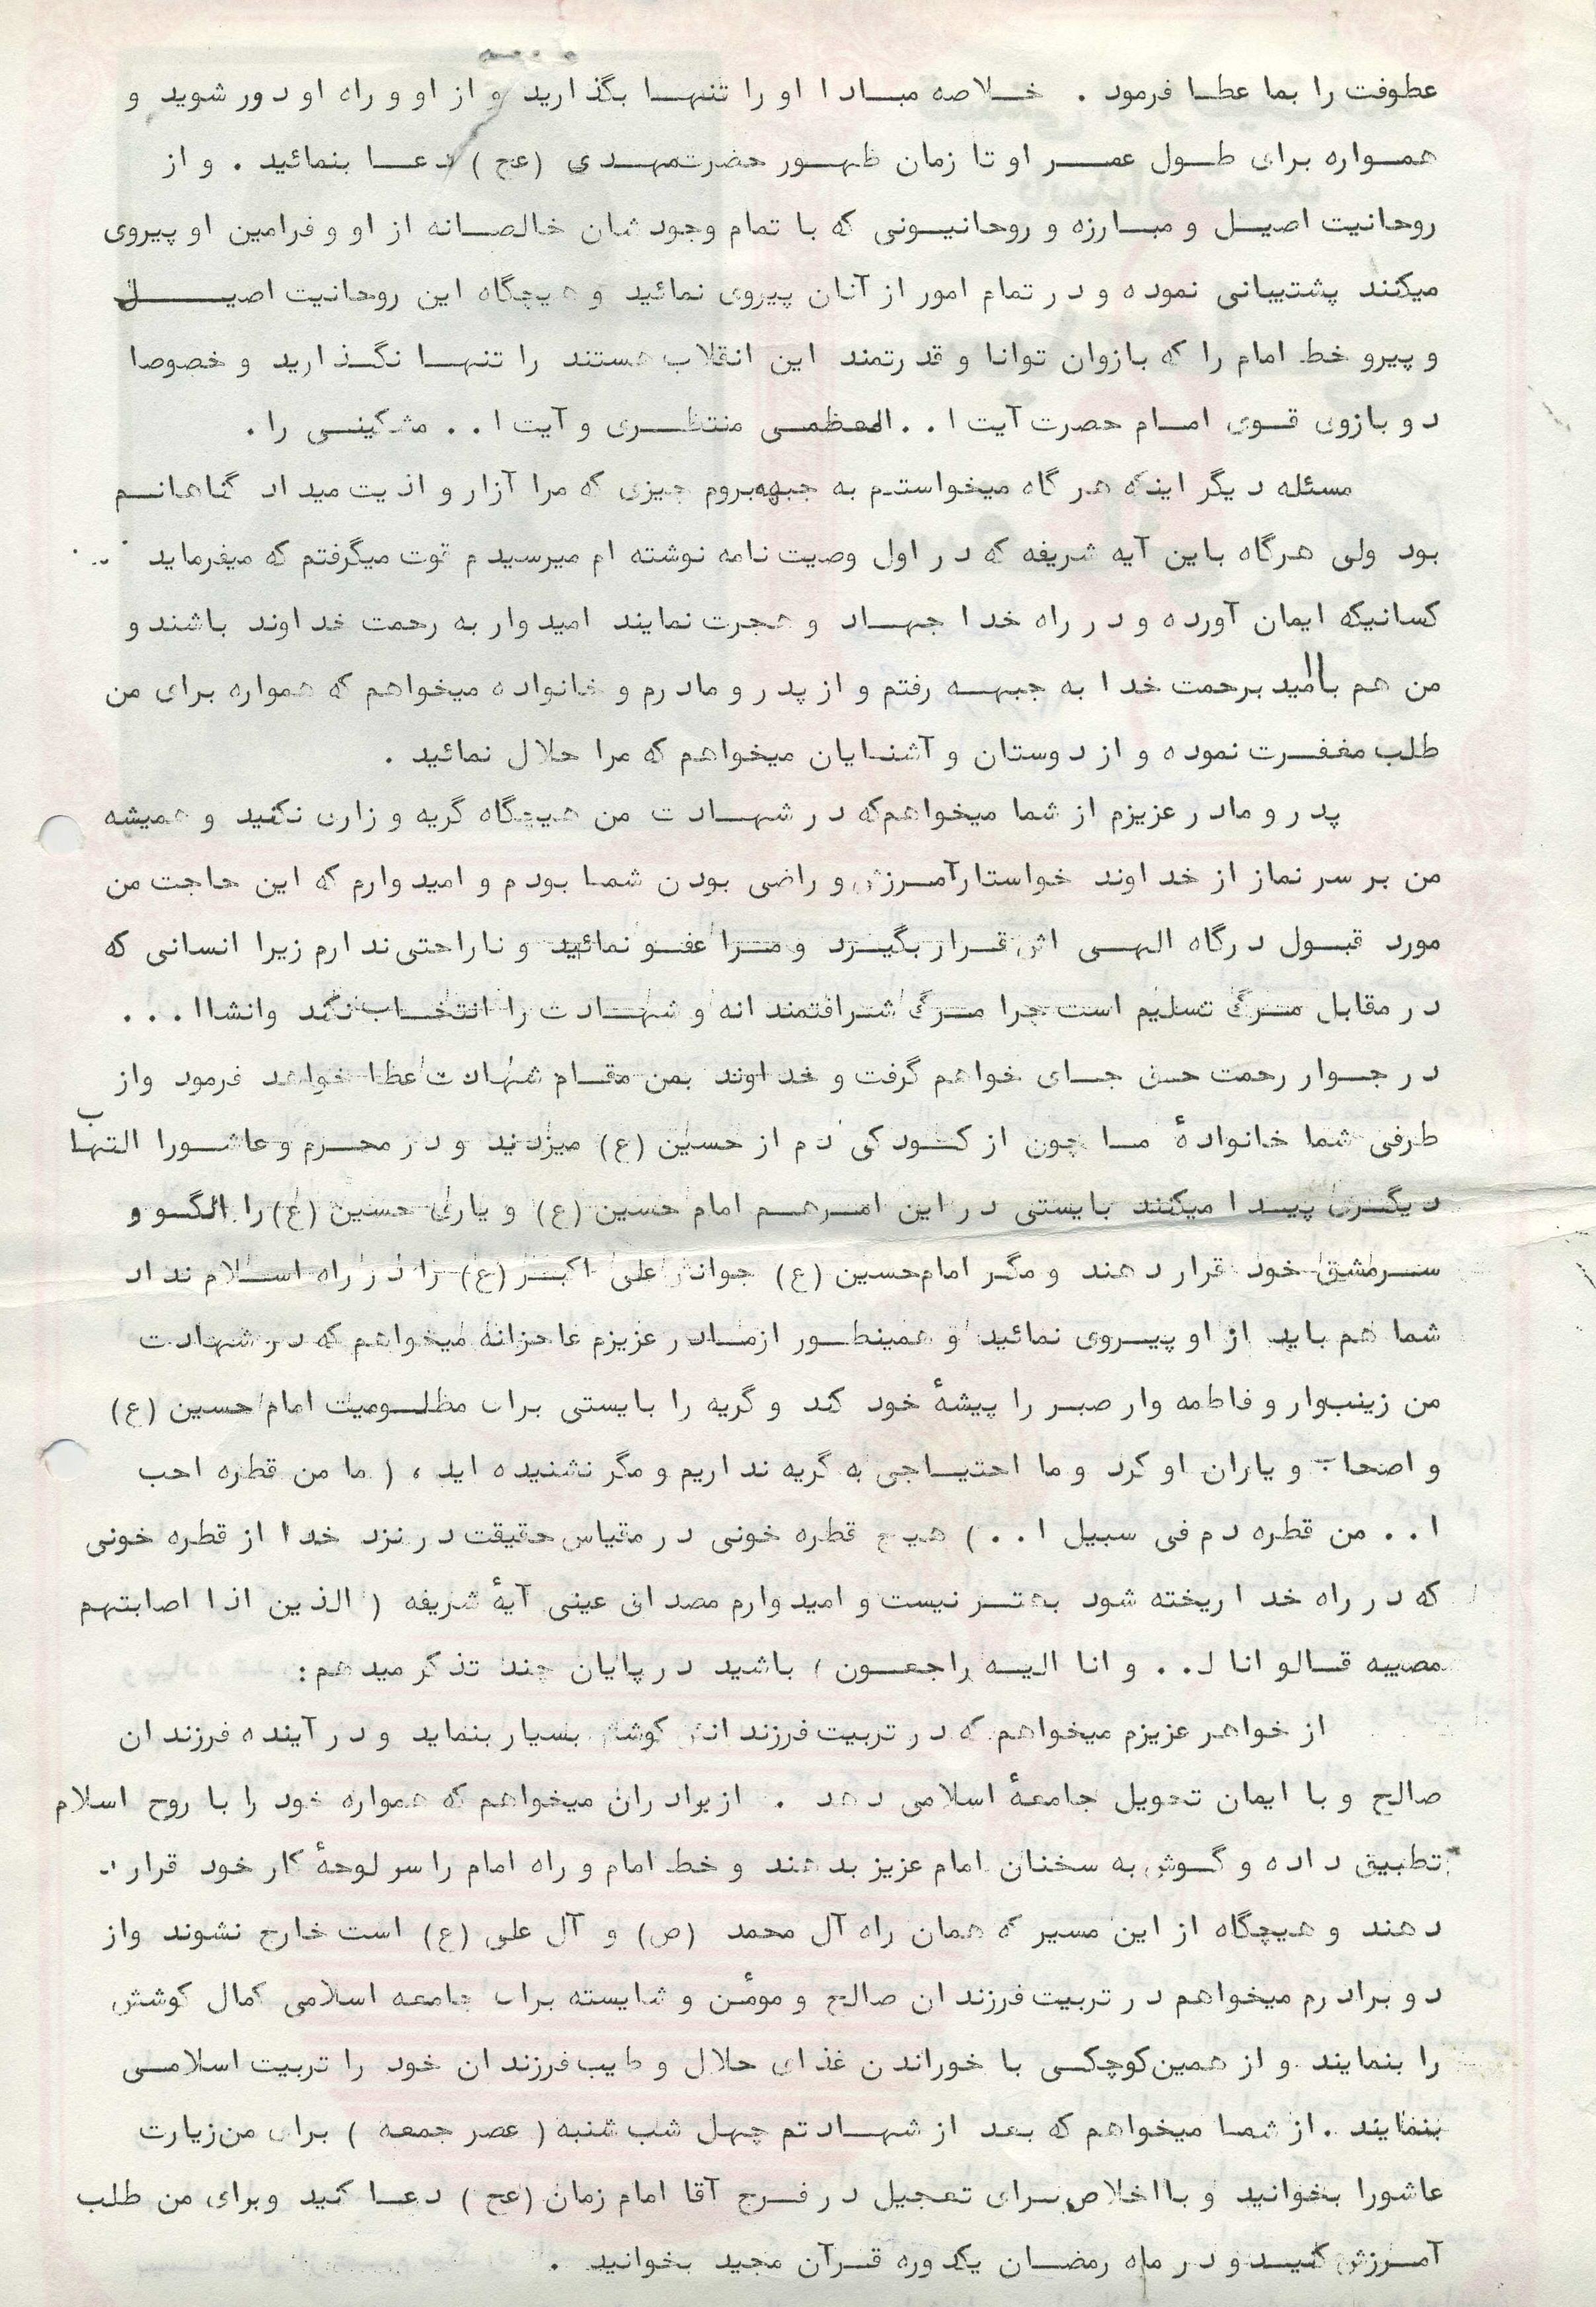 عطوفت را بما عطا فرمود . خلاصه مبادا او را تنها بگذارید و از او و راه او دور شوید و
همواره برای طول عمر او تا زمان ظهور حضرت مهدی (عج) دعا بنمائید . و از
روحانیت اصیل و مبارزه و روحانیونی که با تمام وجودشان خالصانه از او و فرامین او پیروی
میکنند پشتیبانی نموده و در تمام امور از آنان پیروی نمائید و هیچگاه این روحانیت اصیل
و پیرو خط امام را که بازوان توانا و قدرتمند این انقلاب هستند را تنها نگذارید و خصوصا
دو بازوی قوی امام حضرت آیت ا . . العظمی منتظری و آیت ا . . مشکینی را .
مسئله دیگر اینکه هر گاه میخواستم به جبهه بروم چیزی که مرا آزار و اذیت میداد گناهانم
بود ولی هرگاه باین آیه شریفه که در اول وصیت نامه نوشته ام میرسیدم قوت میگرفتم که میفرماید
کسانیکه ایمان آورده و در راه خدا جهاد و هجرت نمایند امیدوار به رحمت خداوند باشند و
من هم باامید برحمت خدا به جبهه رفتم و از پدر و مادرم و خانواده میخواهم که همواره برای من
طلب مغفرت نموده و از دوستان و آشنایان میخواهم که مرا حلال نمائید .
پدر و مادر عزیزم از شما میخواهم که در شهادت من هیچگاه گریه و زاری نکنید و همیشه
من بر سر نماز از خداوند خواستار آمرزش و راضی بودن شما بودم و امیدوارم که این حاجت من
مورد قبول درگاه الهی اش قرار بگیرد و مرا عفو نمائید و ناراحتی ندارم زیرا انسانی که
در مقابل مرگ تسلیم است چرا مرگ شرافتمندانه و شهادت را انتخاب نکند وانشاا . . .
در جوار رحمت حق جای خواهم گرفت و خداوند بمن مقام شهادت عطا خواهد فرمود واز
طرفی شما خانوادهٔ ما چون از کودکی دم از حسین (ع) میزدند و در محرم و عاشورا التهاب
دیگری پیدا میکنند بایستی در این امر هم امام حسین (ع) و یاری حسین (ع) را الگو و
سرمشق خود قرار دهند و مگر امام حسین (ع) جوانش علی اکبر (ع) را در راه اسلام نداد
شما هم باید از او پیروی نمائید و همینطور ازمادر عزیزم عاجزانه میخواهم که در شهادت
من زینب‌وار و فاطمه وار صبر را پیشهٔ خود کند و گریه را بایستی برای مظلومیت امام حسین (ع)
و اصحاب و یاران او کرد و ما احتیاجی به گریه نداریم و مگر نشنیده اید ، ( ما من قطره احب
ا . . من قطره دم فی سبیل ا . . ) هیچ قطره خونی در مقیاس حقیقت در نزد خدا از قطره خونی
که در راه خدا ریخته شود بهتر نیست و امیدوارم مصداق عینی آیهٔ شریفه ( الذین اذا اصابتهم
مصیبه قالو انا لـ . . و انا الیه راجعون ) باشید در پایان چند تذکر میدهم :
از خواهر عزیزم میخواهم که در تربیت فرزندانش کوشش بسیار بنماید و در آینده فرزندان
صالح و با ایمان تحویل جامعهٔ اسلامی دهد . ازبرادران میخواهم که همواره خود را با روح اسلام
تطبیق داده و گوش به سخنان امام عزیز بدهند و خط امام و راه امام را سرلوحهٔ کار خود قرار
دهند و هیچگاه از این مسیر که همان راه آل محمد (ص) و آل علی (ع) است خارج نشوند واز
دو برادرم میخواهم در تربیت فرزندان صالح و مومٔن و شایسته برای جامعه اسلامی کمال کوشش
را بنمایند و از همین کوچکی با خوراندن غذای حلال و طیب فرزندان خود را تربیت اسلامی
بنمایند . از شما میخواهم که بعد از شهادتم چهل شب شنبه ( عصر جمعه ) برای من زیارت
عاشورا بخوانید و بااخلاص برای تعجیل در فرج آقا امام زمان (عج) دعا کنید وبرای من طلب
آمرزش کنید و در ماه رمضان یکدوره قرآن مجید بخوانید .